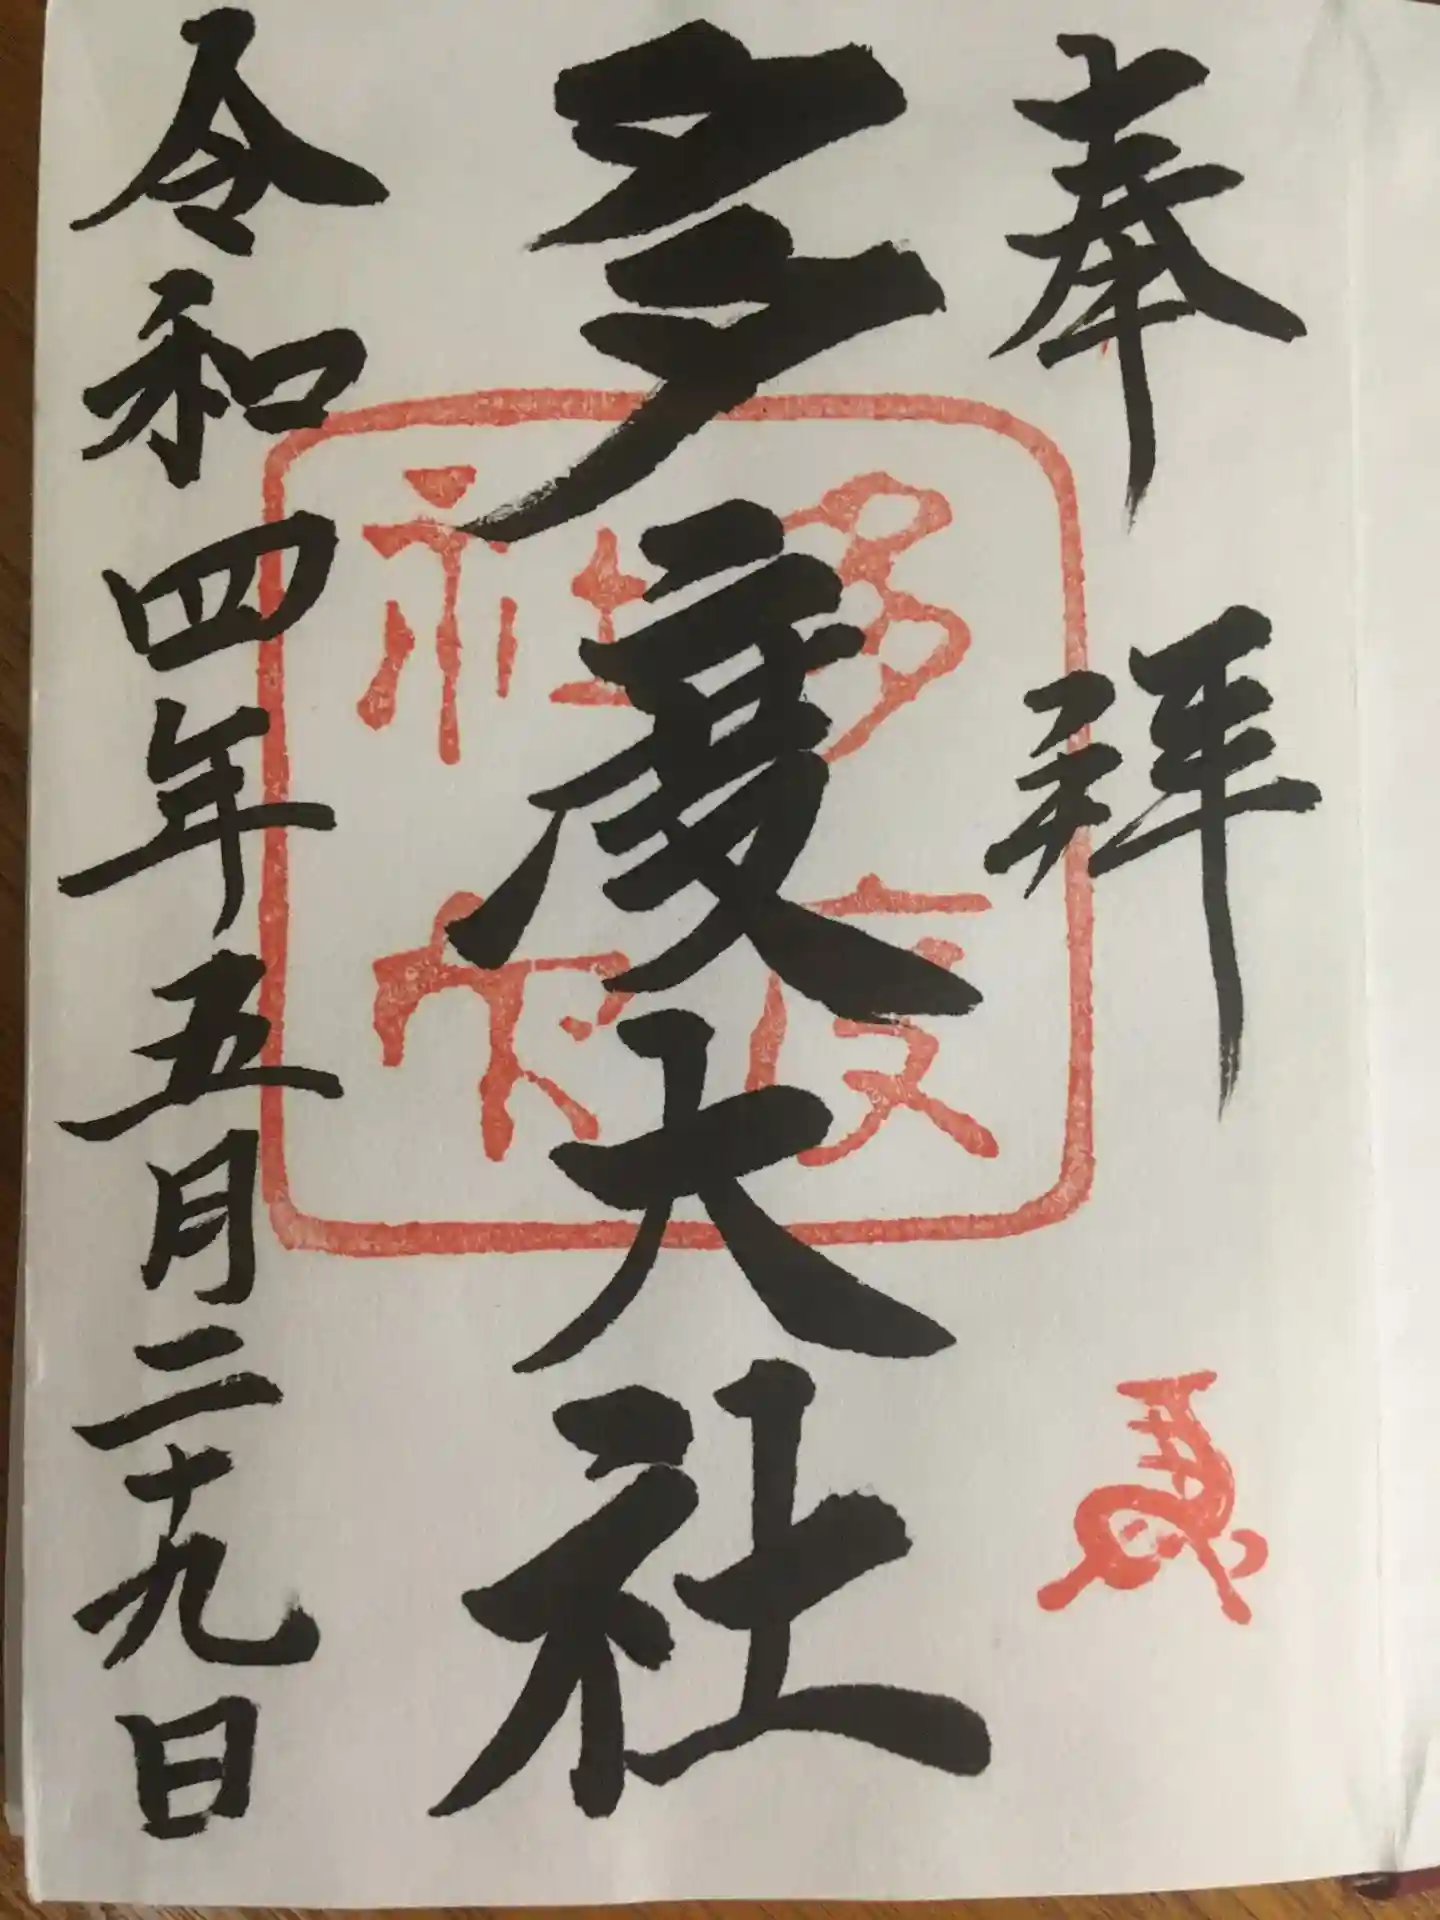 奉拝
多度大社
多度社印
令和四年五月二十九日